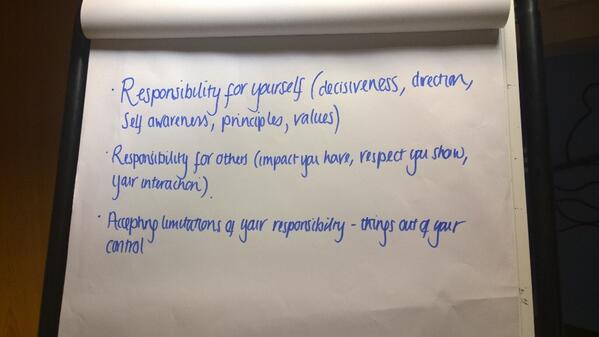 · Responsibility for yourself (decisiveness, direction,
self awareness, principles, values)
· Responsibility for others (impact you have, respect you show,
your interaction).
· Accepting limitations of your responsibility - things out of your
control